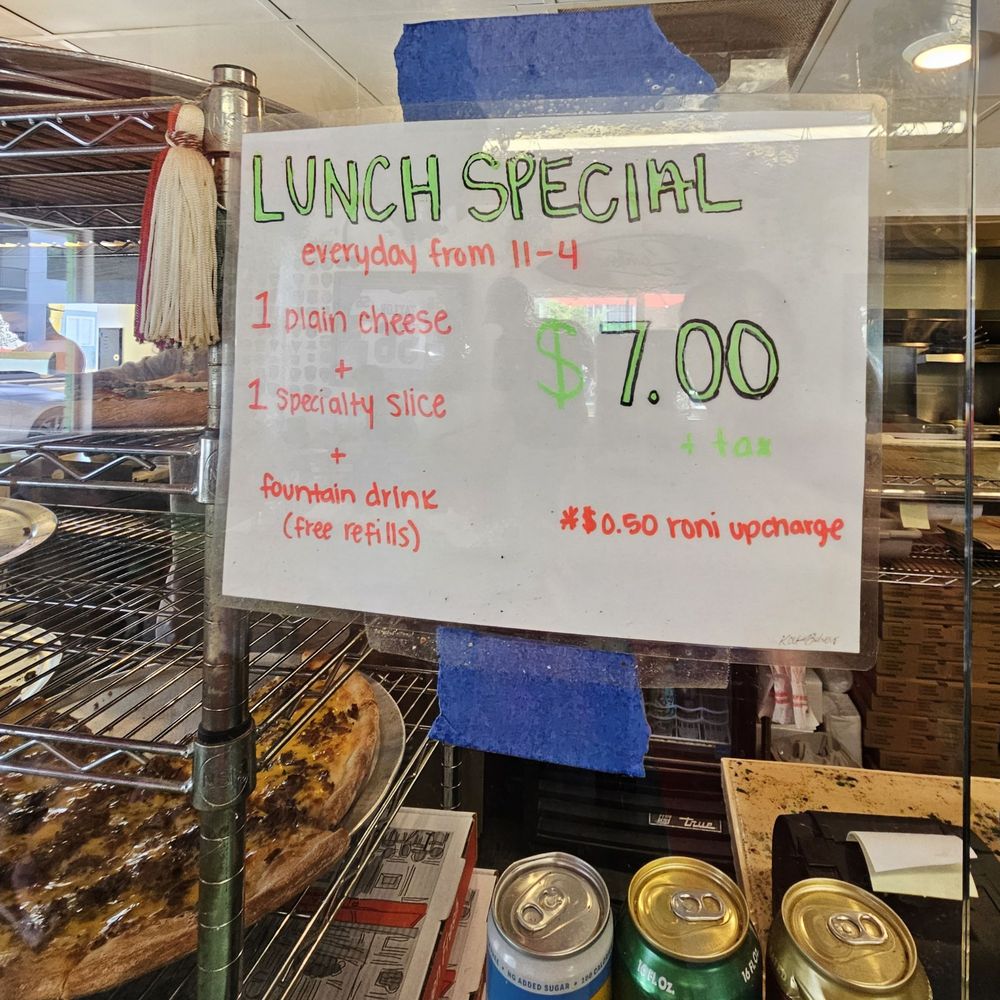 LUNCH SPECIAL
everyday from 11-4
1 plain cheese
+
1 specialty slice
+
fountain drink
(free refills)
$7.00
+ tax
*$0.50 roni upcharge
true
NO ADDED SUGAR
16 FL OZ.
16 FL